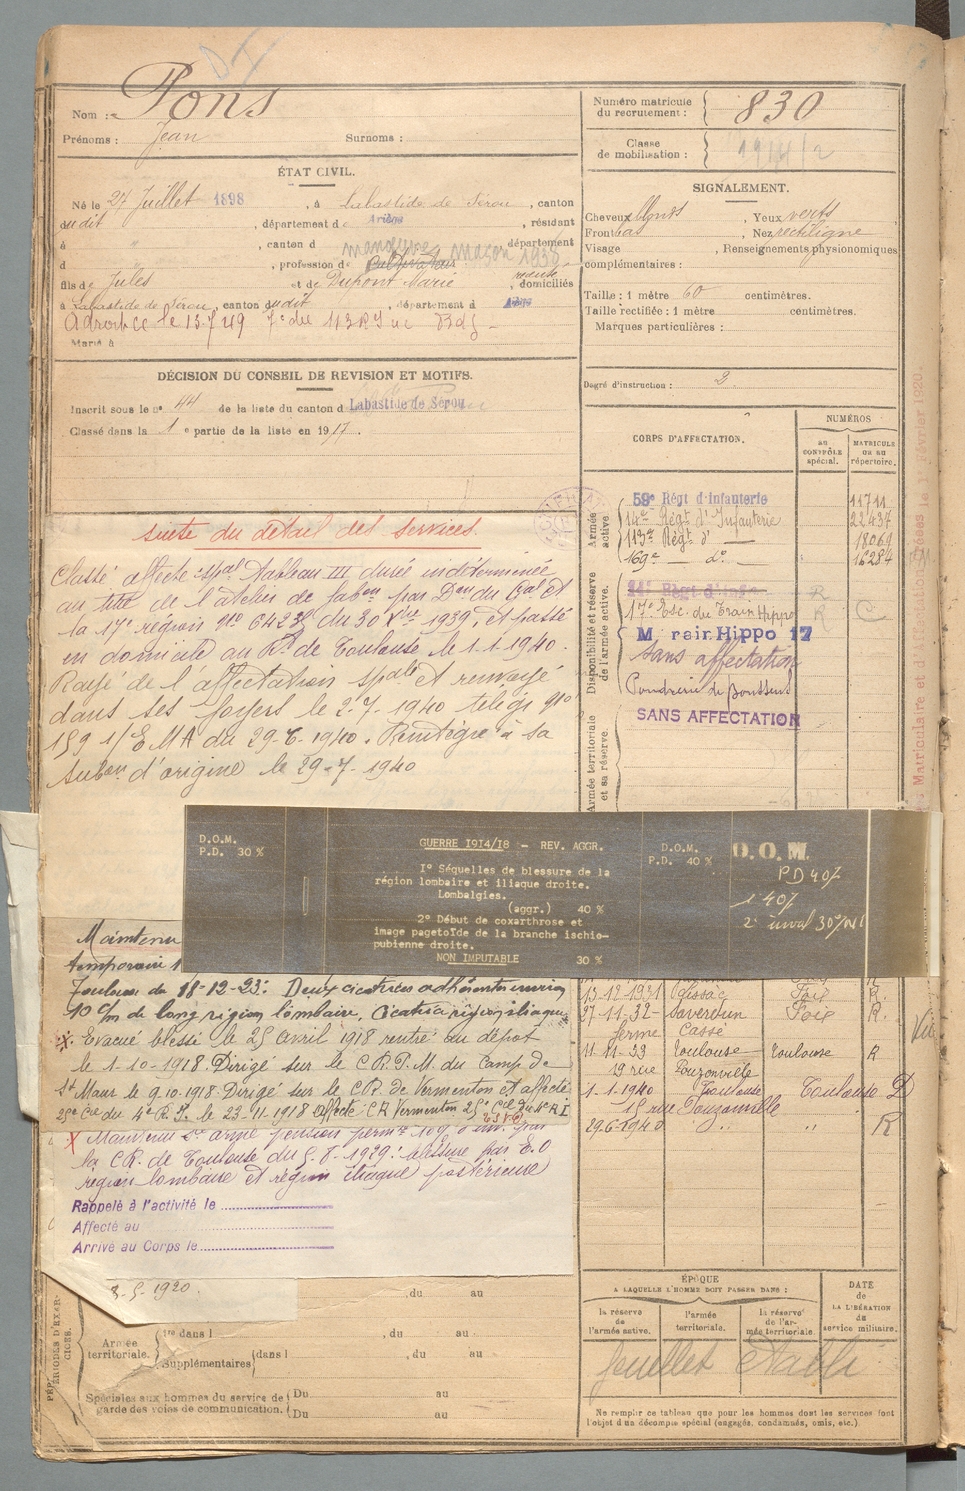 Nom : Pons
Prénoms : Jean Surnoms :
ÉTAT CIVIL.
Né le 27 Juillet 1898, à Labastide de Sérou, canton
dudit, département d Ariège, résidant
à ", canton d département
d ", profession de manœuvre maçon 1938
fils de Jules et de Dupont Marie, domiciliés
à Labastide de Sérou, canton dudit, département d Ariège
Marié à
DÉCISION DU CONSEIL DE REVISION ET MOTIFS.
Inscrit sous le n° 44 de la liste du canton d Labastide de Sérou
Classé dans la 1e partie de la liste en 1917.
Numéro matricule du recrutement : 830
Classe de mobilisation : 1914/2
SIGNALEMENT.
Cheveux blonds, Yeux verts
Front bas, Nez rectiligne
Visage , Renseignements physionomiques
complémentaires :
Taille : 1 mètre 60 centimètres.
Taille rectifiée : 1 mètre centimètres.
Marques particulières :
Degré d'instruction : 2
CORPS D'AFFECTATION.
NUMÉROS
AU CONTRÔLE spécial.
MATRICULE OU AU répertoire.
Armée active
59e Régt d'infanterie 11711
14e Régt d'Infanterie 22437
113e Régt d° — 18061
169e — d°. — 16284
Disponibilité et réserve de l'armée active.
14e Régt d'inf. R
17e Esc. du Train Hippo R C
M. rein Hippo 17
Sans affectation
SANS AFFECTATION
Armée territoriale et sa réserve.
Matriculaire et d'Alsaciens créées le 1 Février 1920.
Suite du détail des services.
Classé affecté spal Tableau III durée indéterminée
au titre de l'atelier de fabon par Don du Gal Ct
la 17e région No 6423 du 30 Xbre 1939, et passé
en domicile au Rt de Toulouse le 1.1.1940.
Rayé de l'affectation spale et renvoyé
dans ses foyers le 2.7.1940 télégr no
159 1/EMA du 29.6.1940. Réintégré à sa
Subon d'origine le 29.7.1940
D.O.M.
P.D. 30 %
GUERRE 1914/18 - REV. AGGR.
1° Séquelles de blessure de la
région lombaire et iliaque droite.
Lombalgies.
(aggr.) 40 %
2° Début de coxarthrose et
image pagetoïde de la branche ischio-
pubienne droite.
NON IMPUTABLE 30 %
D.O.M.
P.D. 40 %
D.O.M.
PD 40%
1° 40%
2° inval 30%
Maintenu
temporaire 1
Toulouse du 18-12-23: Deux cicatrices adhérentes environ
10 c/m de long région lombaire, cicatrice région iliaque
Evacué blessé le 25 avril 1918 rentré au dépôt
le 1-10-1918. Dirigé sur le C.R.P.M. du Camp de
St Maur le 9.10.1918. Dirigé sur le C.R. de Vermenton et affecté
25e Cie du 4e R.I. le 23.11.1918 Affecté CR Vermenton 25e Cie du 4e R.I
X Maintenu Sce armé pension permte 10% d'inv. par
la C.R. de Toulouse du 5.8.1929: blessure par E.O
région lombaire et région iliaque postérieure
Rappelé à l'activité le
Affecté au
Arrivé au Corps le
13-12-1931 Foix R.
27-11-32 Saverdun Foix R.
ferme Cassé
11-11-33 Toulouse Toulouse R
19 rue Pouzonville
1-1-1940 Toulouse Toulouse D
15 rue Pouzonville
29.6.1940 " " " R
3-5-1920.
, du au
PÉRIODES D'EXERCICES.
Armée territoriale.
1re dans l , du au
Supplémentaires dans l , du au
Spéciales aux hommes du service de garde des voies de communication.
Du au
Du au
ÉPOQUE
A LAQUELLE L'HOMME DOIT PASSER DANS :
la réserve de l'armée active.
l'armée territoriale.
la réserve de l'armée territoriale.
DATE de LA LIBÉRATION du service militaire.
feuillet établi
Ne remplir ce tableau que pour les hommes dont les services font
l'objet d'un décompte spécial (engagés, condamnés, omis, etc.)